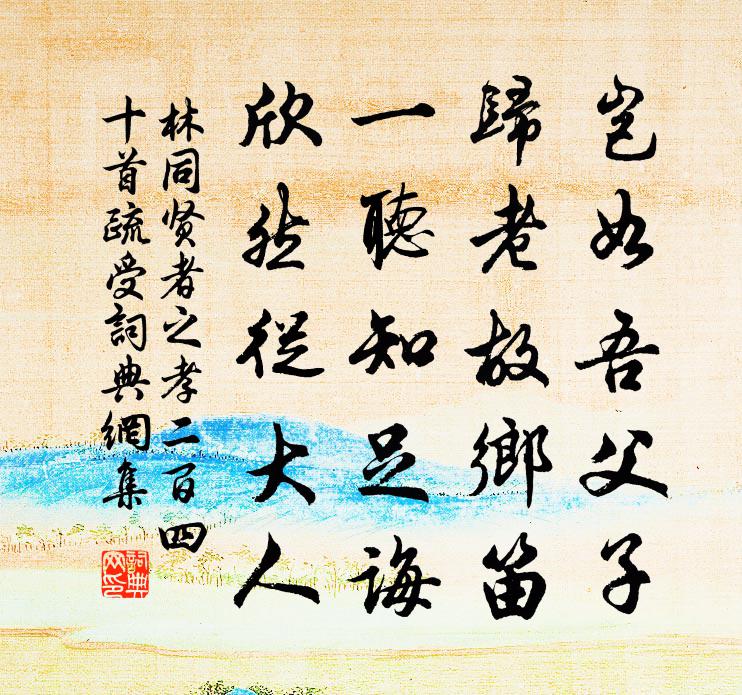 豈如吾父子
歸老故鄉笛
一聽知足誨
欣然從大人
林同贤者之孝二百四
十首疏受詞典網集
詞典
网印